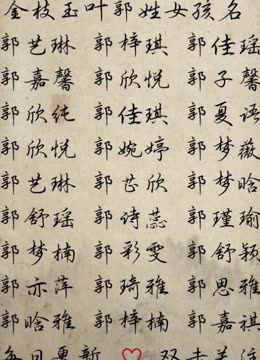 金枝玉叶郭姓女孩名
郭艺琳 郭梓琪 郭佳瑶
郭嘉馨 郭欣悦 郭子馨
郭欣纯 郭佳琪 郭夏语
郭欣悦 郭婉婷 郭梦薇
郭艺琳 郭芷欣 郭梦晗
郭舒瑶 郭诗蕊 郭瑾瑜
郭梦楠 郭彩雯 郭舒颖
郭亦萍 郭琦雅 郭思雅
郭晗雅 郭梓楠 郭嘉祺
每日更新 双击关注